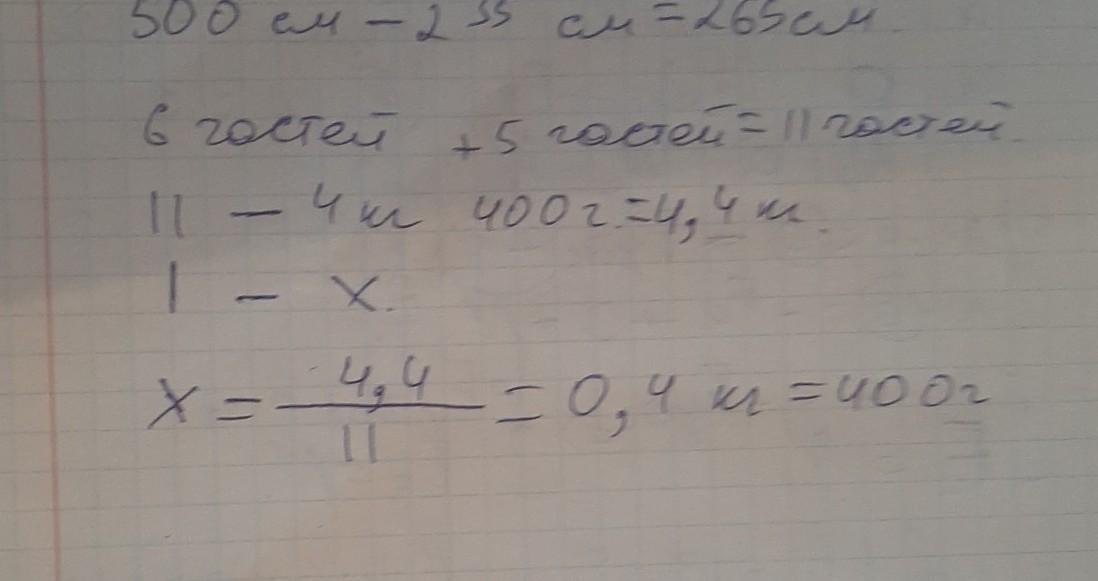 500 см - 235 см = 265 см.
6 гостей + 5 гостей = 11 гостей.
11 - 4 кг 400 г. = 4,4 кг.
1 - х.
х = 4,4 / 11 = 0,4 кг = 400 г